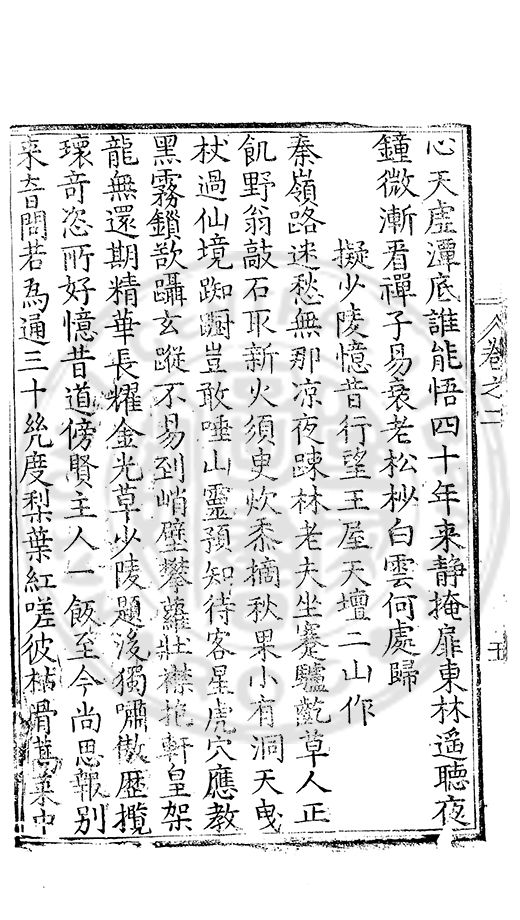 心天虛潭底誰能悟四十年来靜掩扉東林遥聽夜
鐘微漸看禪子易衰老松杪白雲何處歸
擬少陵憶昔行望王屋天壇二山作
秦嶺路迷愁無那凉夜踈林老夫坐蹇驢齕草人正
飢野翁敲石取新火須臾炊黍摘秋果小有洞天曵
杖過仙境踟躕豈敢唾山靈預知待客星虎穴應教
黑霧鎖欲躡玄蹤不易到峭壁攀蘿壯襟抱軒皇架
龍無還期精華長耀金光草少陵題後獨嘯傲歷攬
瓌奇恣所好憶昔道傍賢主人一飯至今尚思報别
来音問若為通三十幾度梨葉紅嗟彼枯骨蒿萊中
卷之一
五